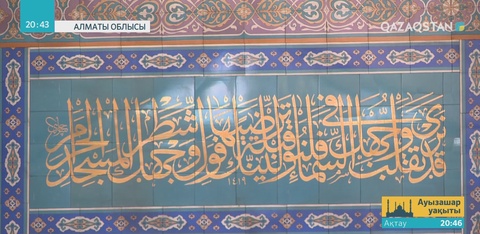 20:43
АЛМАТЫ ОБЛЫСЫ
QAZAQSTAN
قد نرى تقلب وجهك في السماء فلنولينك قبلة ترضيها فول وجهك شطر المسجد الحرام
١٤١٩
Ауызашар
уақыты
Ақтау 20:46